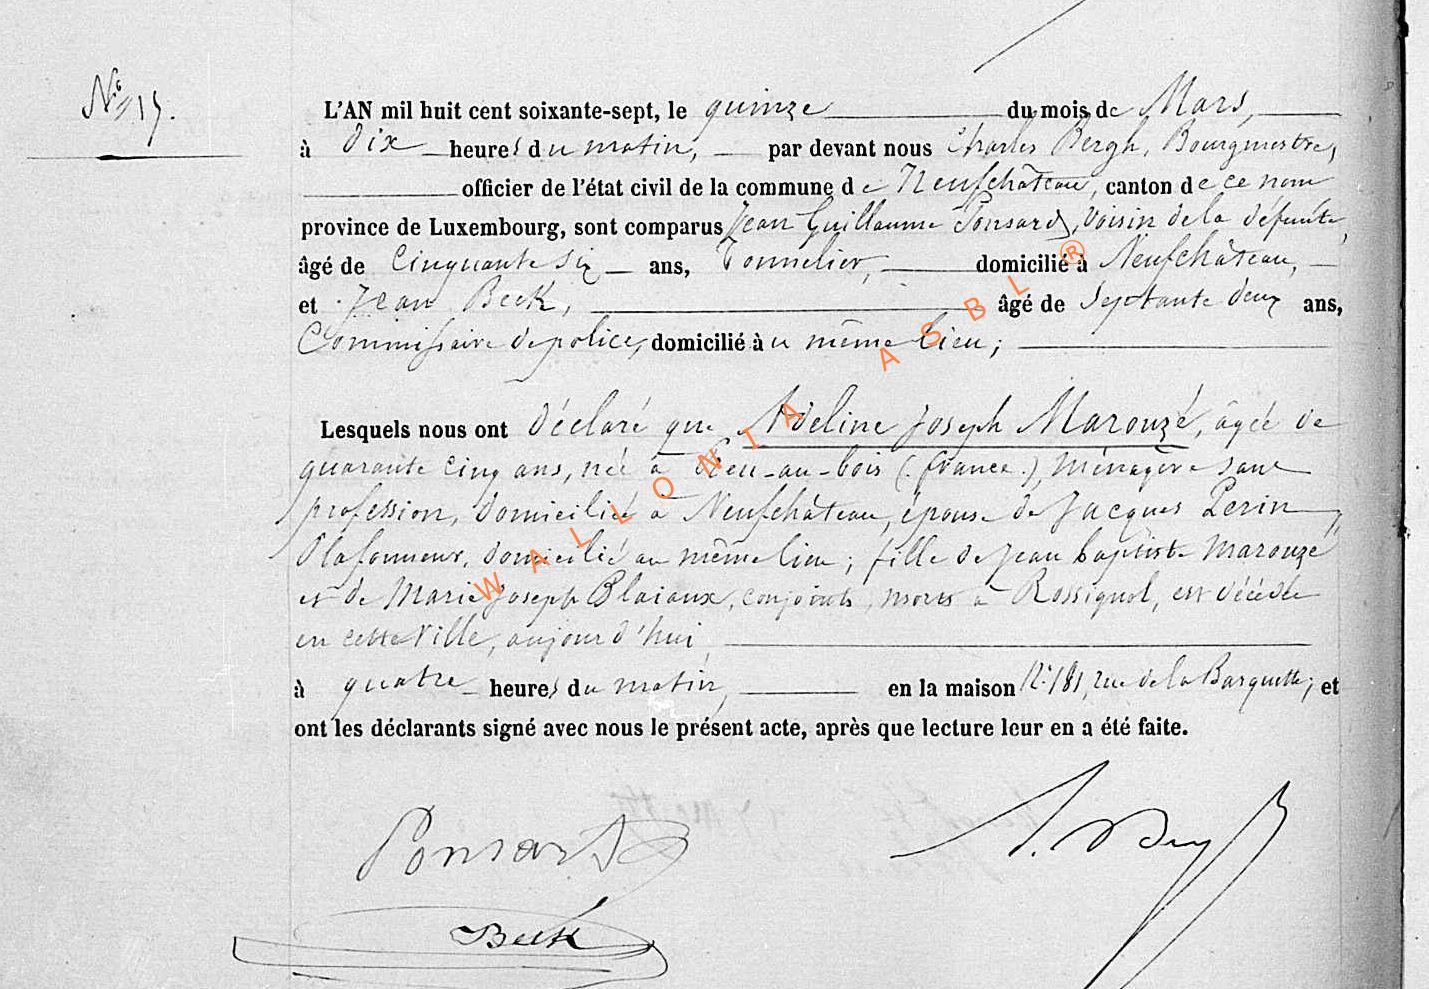 N° 15.
L'AN mil huit cent soixante-sept, le quinze du mois de Mars,
à Dix heures du matin, par devant nous Charles Bergh, Bourgmestre,
officier de l'état civil de la commune de Neufchâteau, canton de ce nom
province de Luxembourg, sont comparus Jean Guillaume Ponsard, voisin de la défunte,
âgé de Cinquante six ans, Tonnelier, domicilié à Neufchâteau,
et Jean Beck, âgé de Septante deux ans,
Commissaire de police, domicilié au même lieu;
Lesquels nous ont déclaré que Adeline Joseph Marouzé, âgée de
quarante cinq ans, née à -au-bois (france.), Ménagère sans
profession, domiciliée à Neufchâteau, épouse de Jacques Perin,
Plafonneur, domicilié au même lieu; fille de Jean baptiste Marouzé
et de Marie Joseph Blaiaux, conjoints, morts à Rossignol, est décédée
en cette ville, aujourd'hui,
à quatre heures du matin, en la maison N° 181, rue de la Barquette; et
ont les déclarants signé avec nous le présent acte, après que lecture leur en a été faite.
Ponsard
Beck
WALLONIA ASBL ®